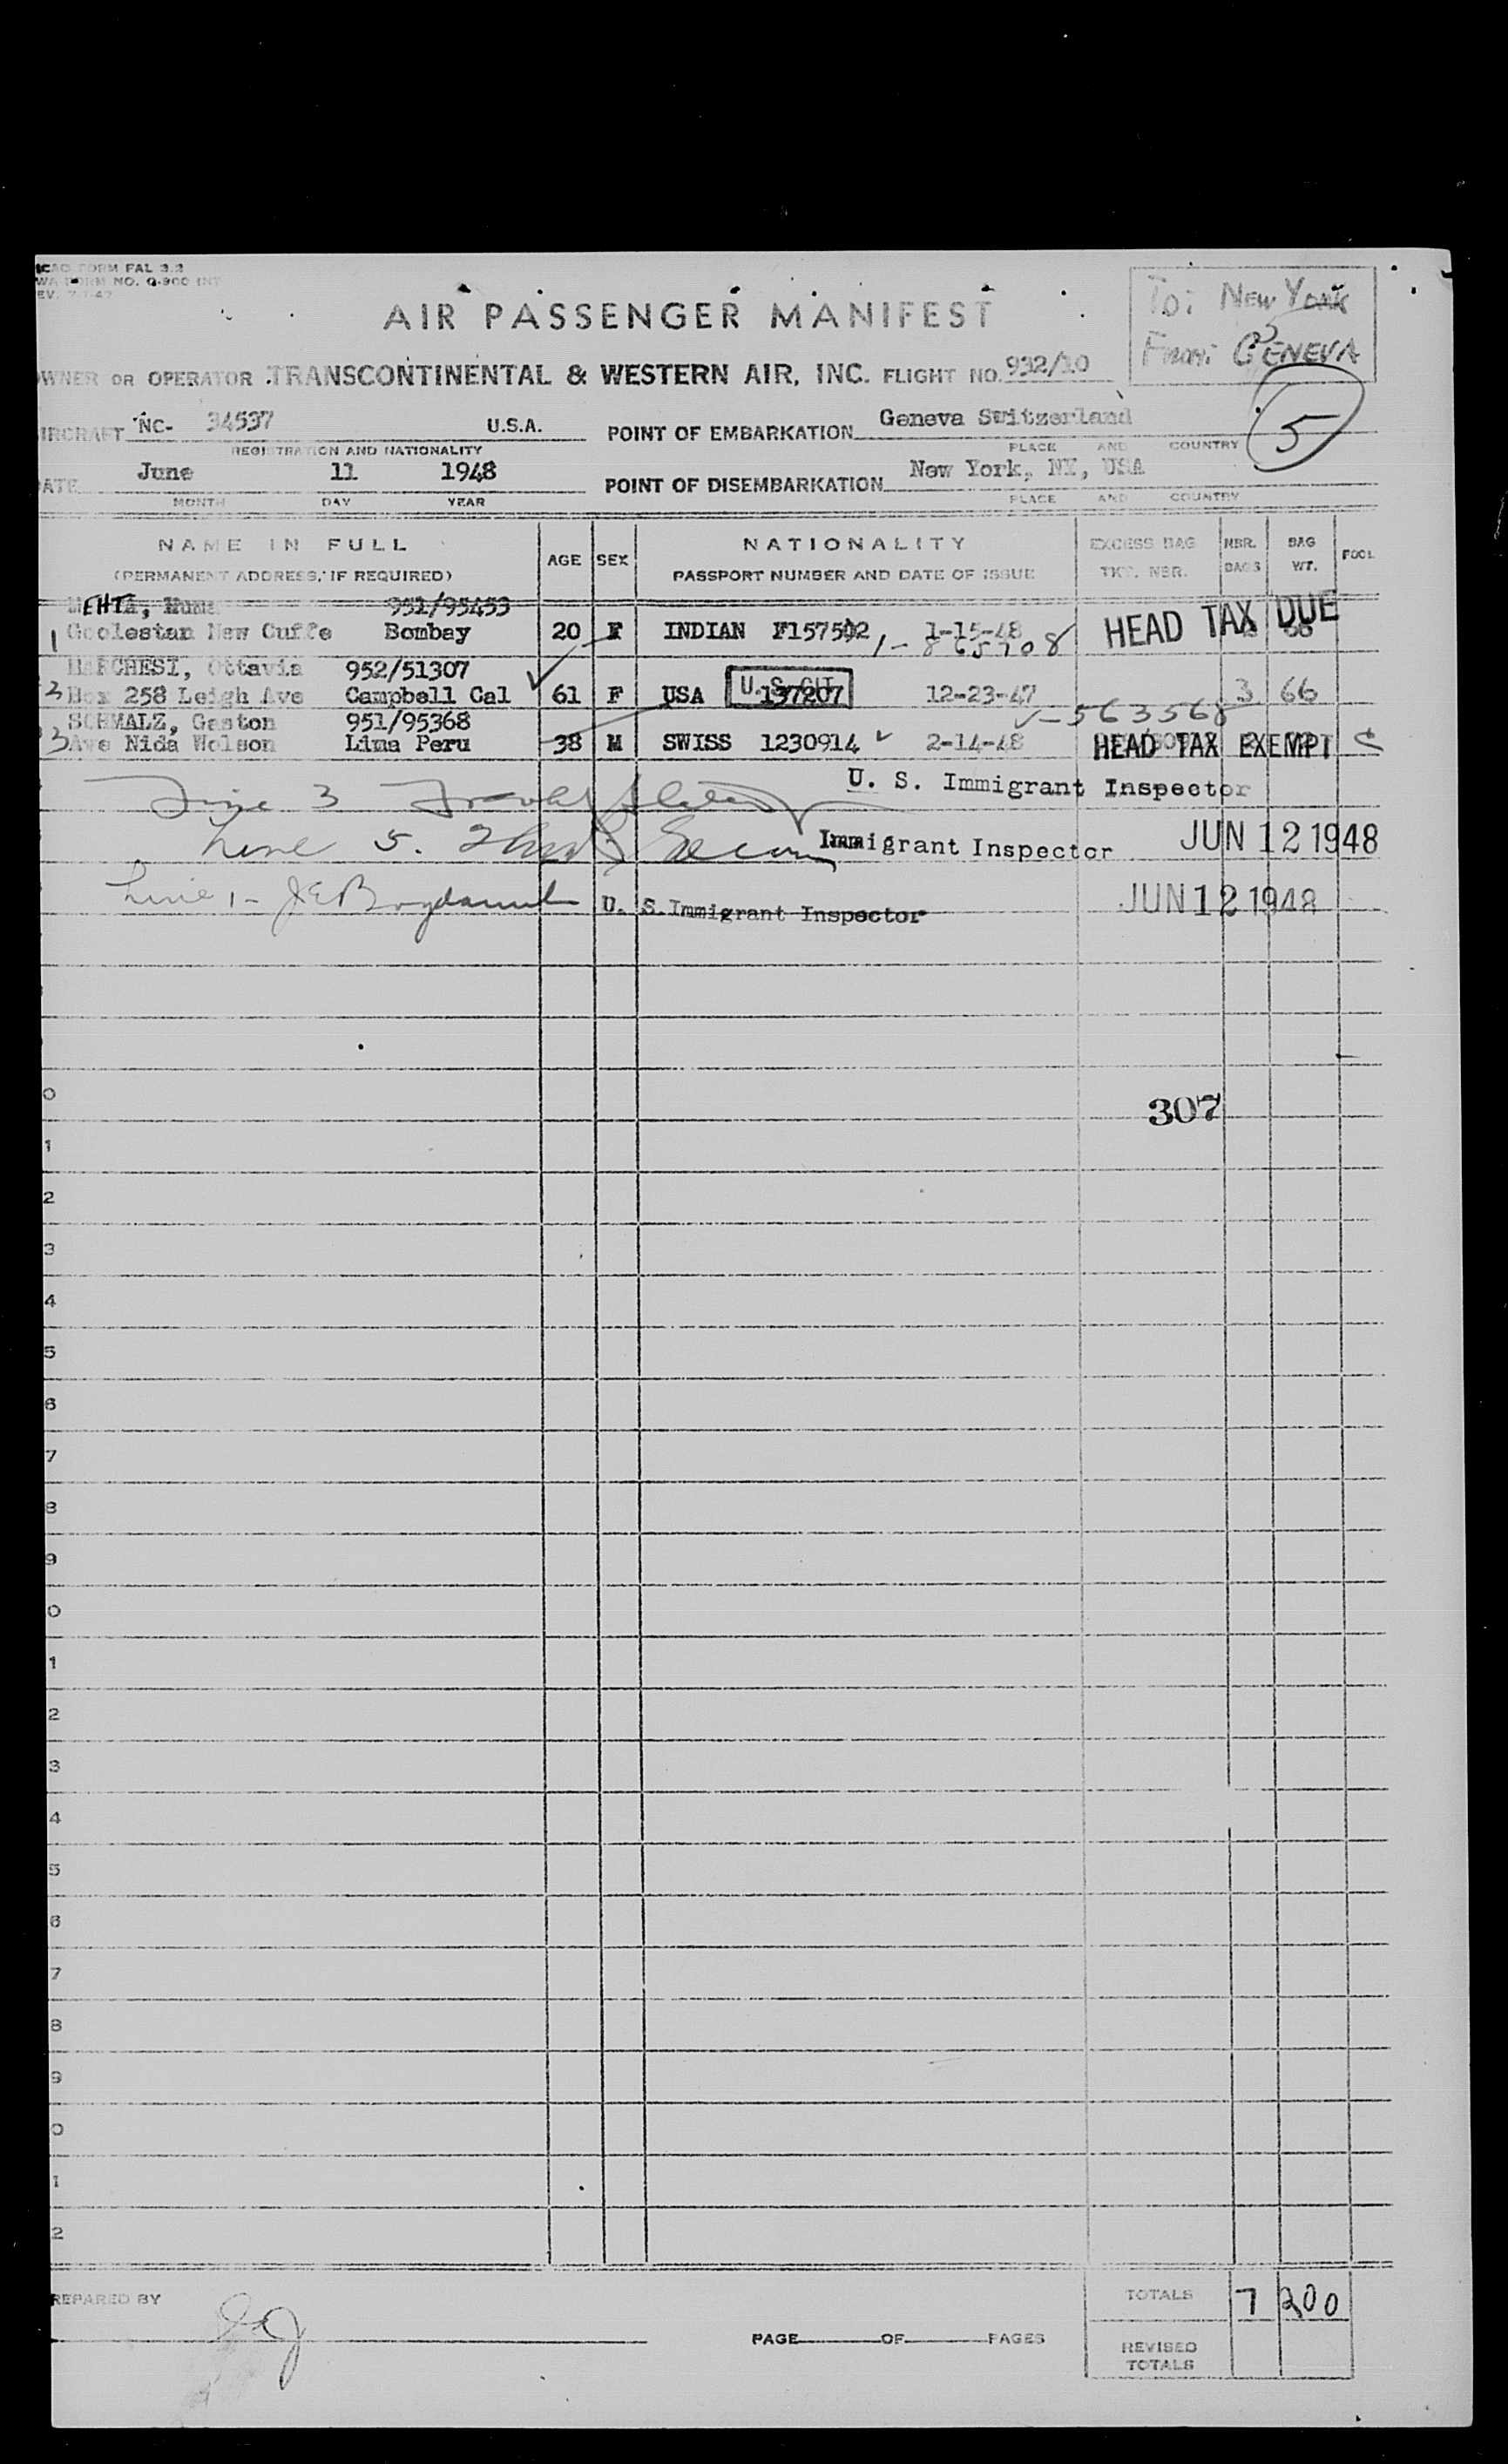 ICAO FORM FAL 3.2
WA FORM NO. Q-900 INT
EV. 7-1-47
To: NEW YORK
From: GENEVA
AIR PASSENGER MANIFEST
OWNER OR OPERATOR TRANSCONTINENTAL & WESTERN AIR, INC. FLIGHT NO. 932/10
5
AIRCRAFT NC- 34537 U.S.A. POINT OF EMBARKATION Geneva Switzerland
REGISTRATION AND NATIONALITY PLACE AND COUNTRY
DATE June 11 1948 POINT OF DISEMBARKATION New York, NY, USA
MONTH DAY YEAR PLACE AND COUNTRY
NAME IN FULL AGE SEX NATIONALITY EXCESS BAG NBR. BAG
(PERMANENT ADDRESS, IF REQUIRED) PASSPORT NUMBER AND DATE OF ISSUE TKT. NBR. BAGS WT.
MEHTA, Huma 951/95453
1 Goolestan New Cuffe Bombay 20 F INDIAN F157592 1-15-48 HEAD TAX DUE
1-865708
MARCHESI, Ottavia 952/51307
3 Box 258 Leigh Ave Campbell Cal 61 F USA U.S. CIT 137207 12-23-47 3 66
SCHMALZ, Gaston 951/95368 V-563568
3 Ave Nida Wolson Lima Peru 38 M SWISS 1230914 2-14-48 HEAD TAX EXEMPT
Line 3 U. S. Immigrant Inspector
Line 5. Immigrant Inspector JUN 12 1948
Line 1- U. S. Immigrant Inspector JUN 12 1948
0
307
1
2
3
4
5
6
7
8
9
0
1
2
3
4
5
6
7
8
9
0
1
2
PREPARED BY TOTALS 7 200
PAGE OF PAGES
REVISED
TOTALS